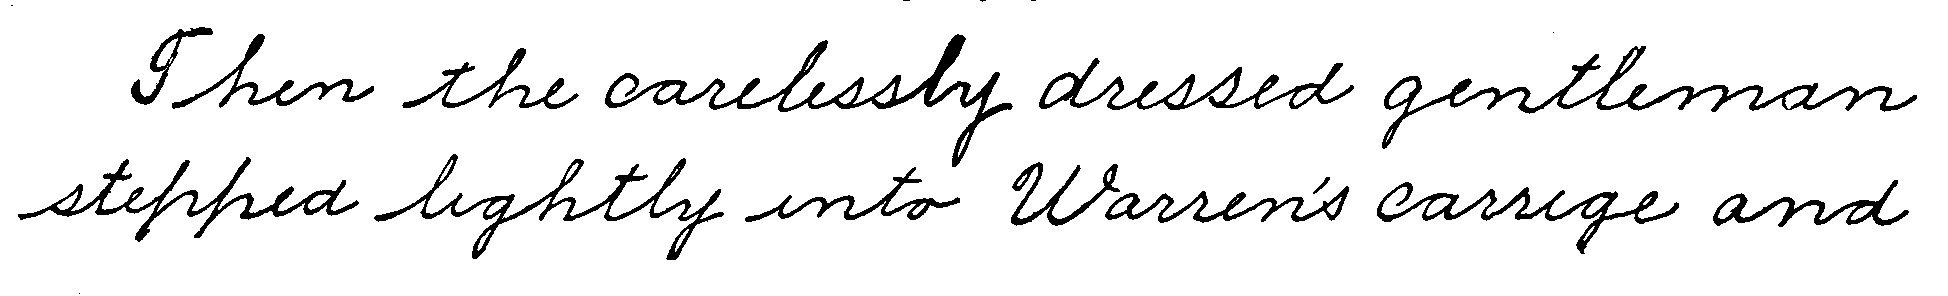 Then the carelessly dressed gentleman
stepped lightly into Warren's carrige and